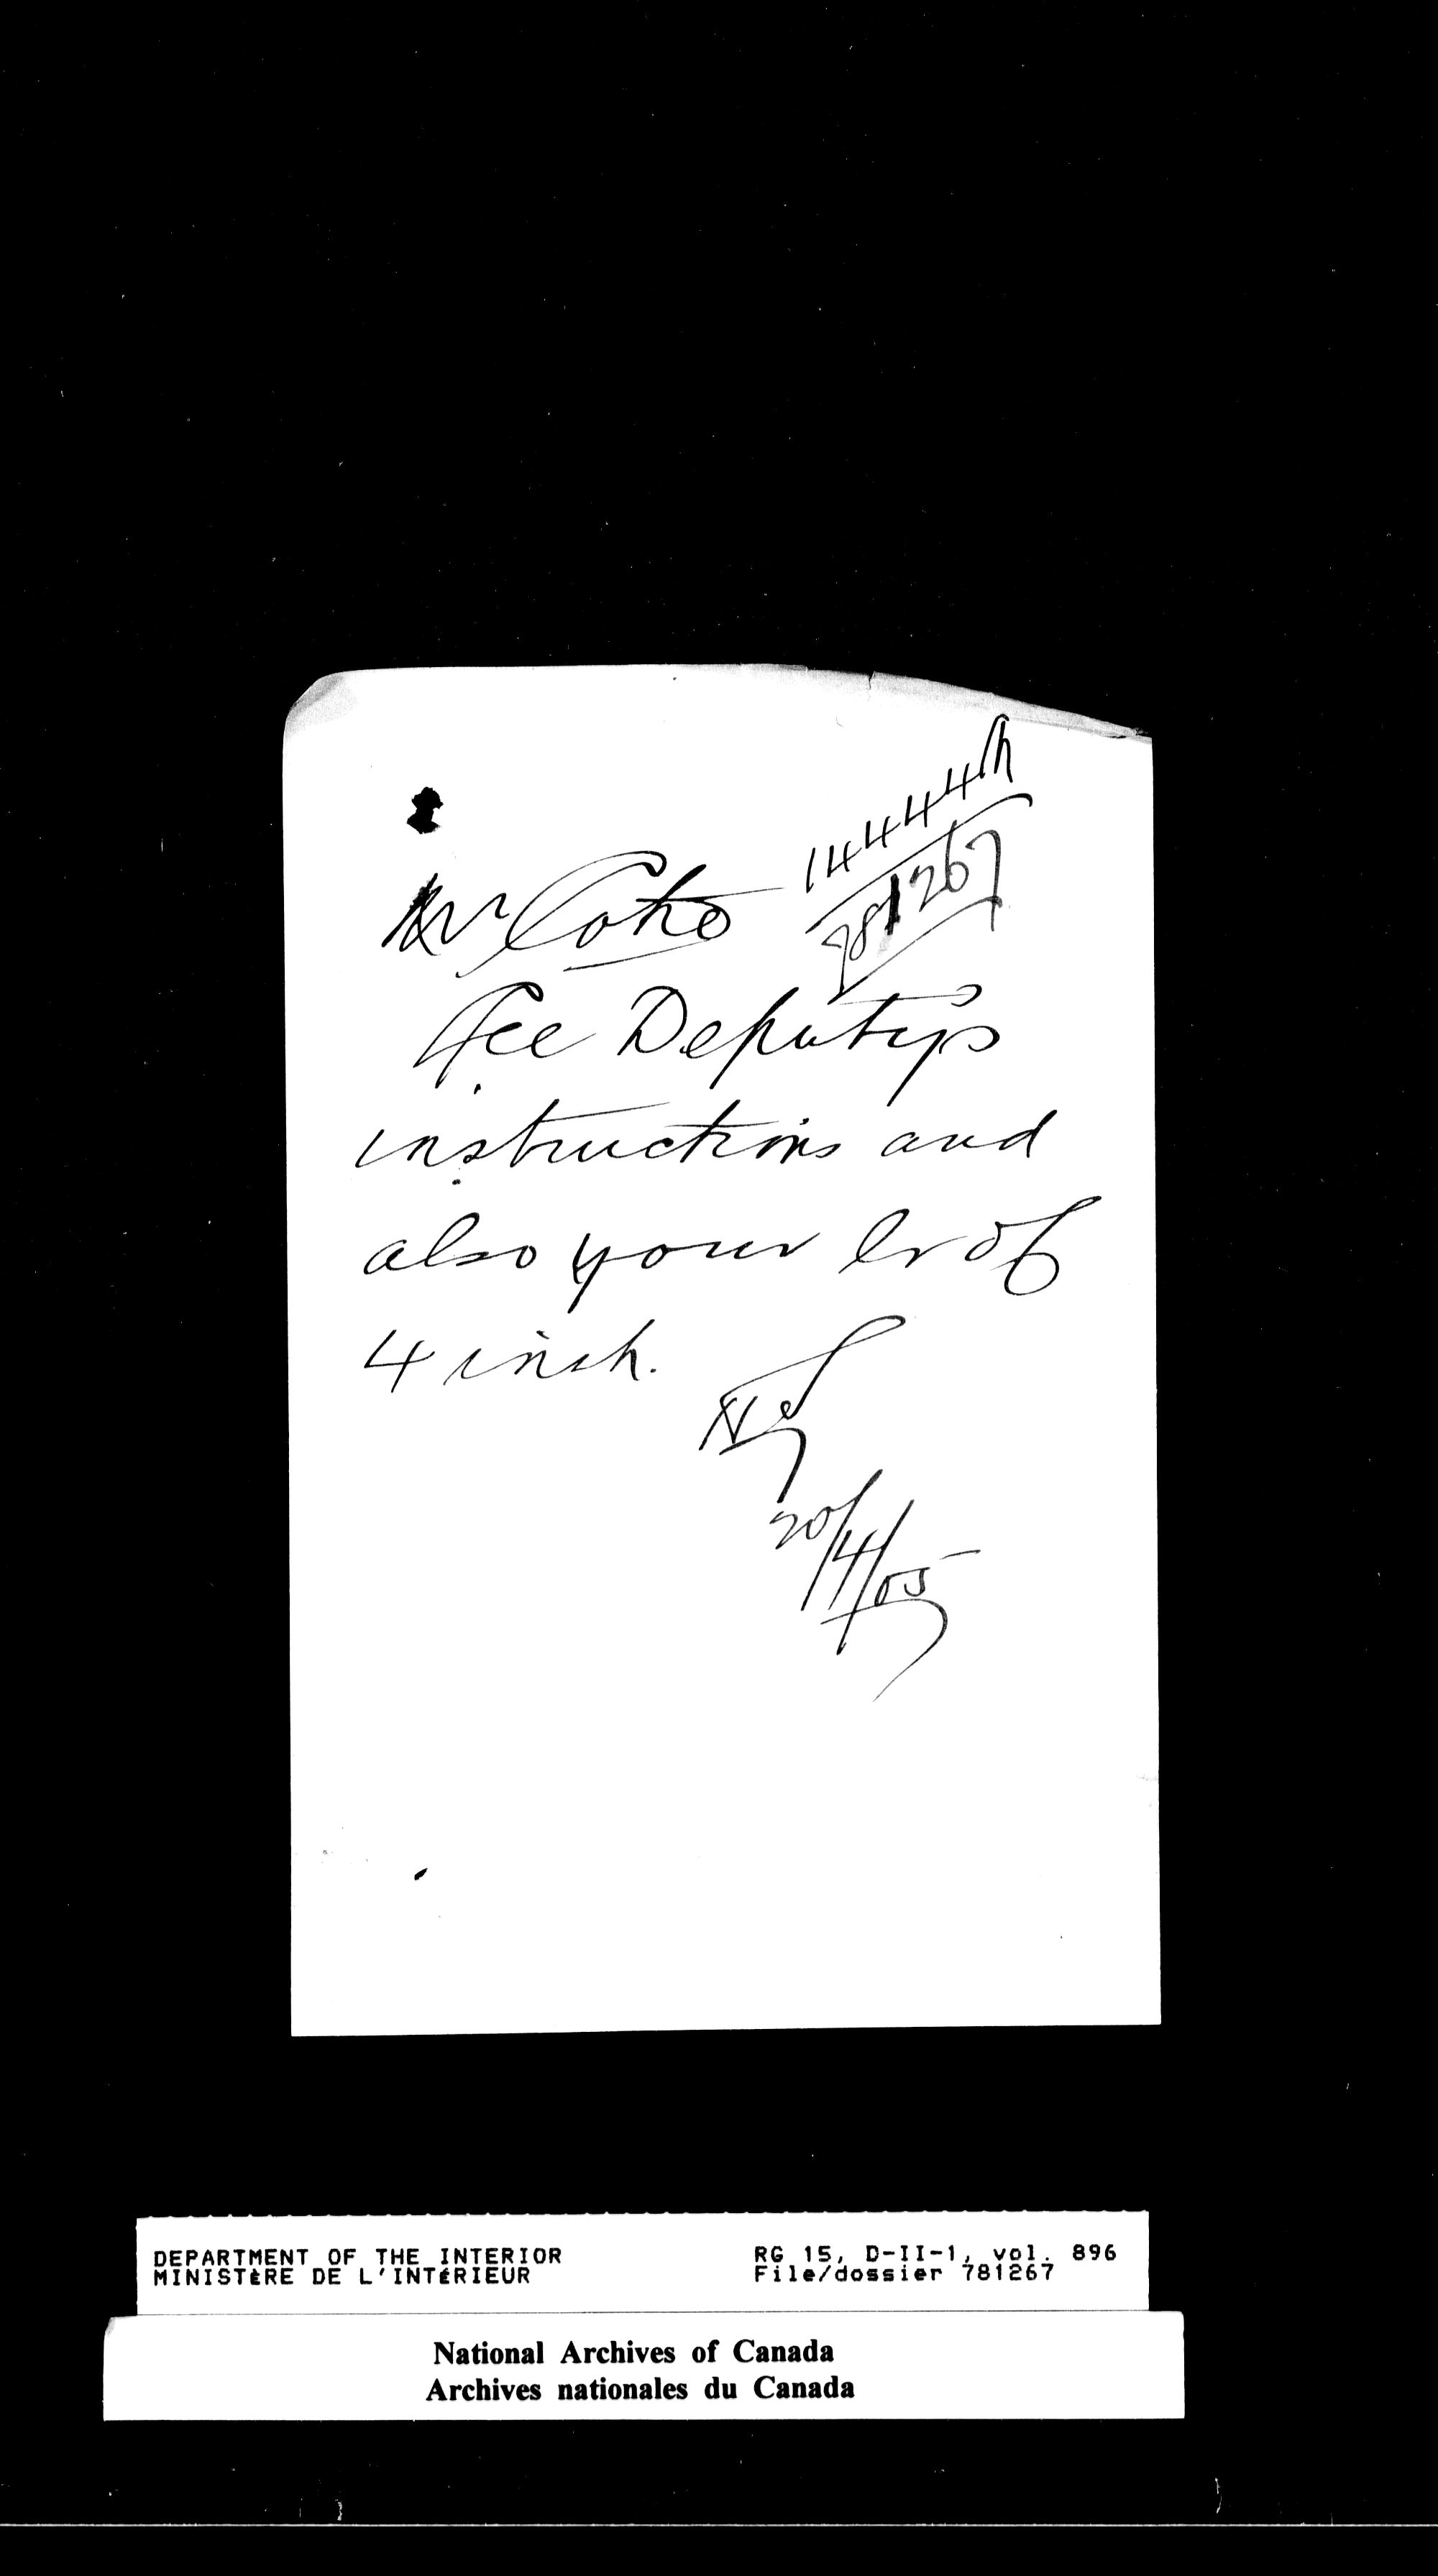 14444
781267
Mr Coté
See Deputy's
instructions and
also your lr of
4 inst.
20/4/05
DEPARTMENT OF THE INTERIOR
MINISTÈRE DE L'INTÉRIEUR
RG 15, D-II-1, vol. 896
File/dossier 781267
National Archives of Canada
Archives nationales du Canada